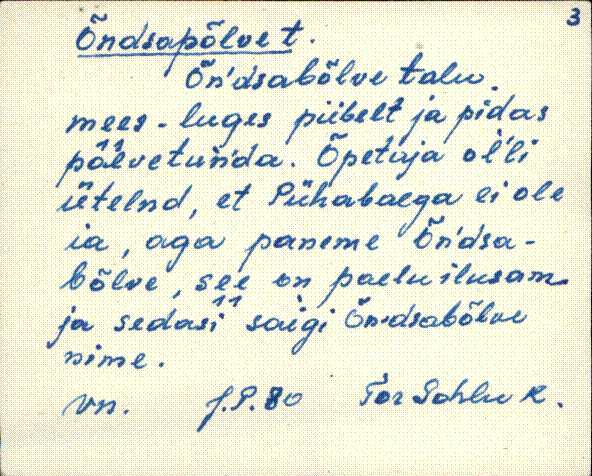 3
Õndsapõlve t.
Õn'dsabõlve talu
mees - luges piibelt ja pidas
pälvetun'da. Õpetaja ol'li
ütelnd, et Pühabaega ei ole
ia, aga paneme Õn'dsa-
bõlve, see on paelu ilusam
ja sedasi saigi Õn'dsabõlve
nime.
vn. J.P. 80 Tor Sohlu k.